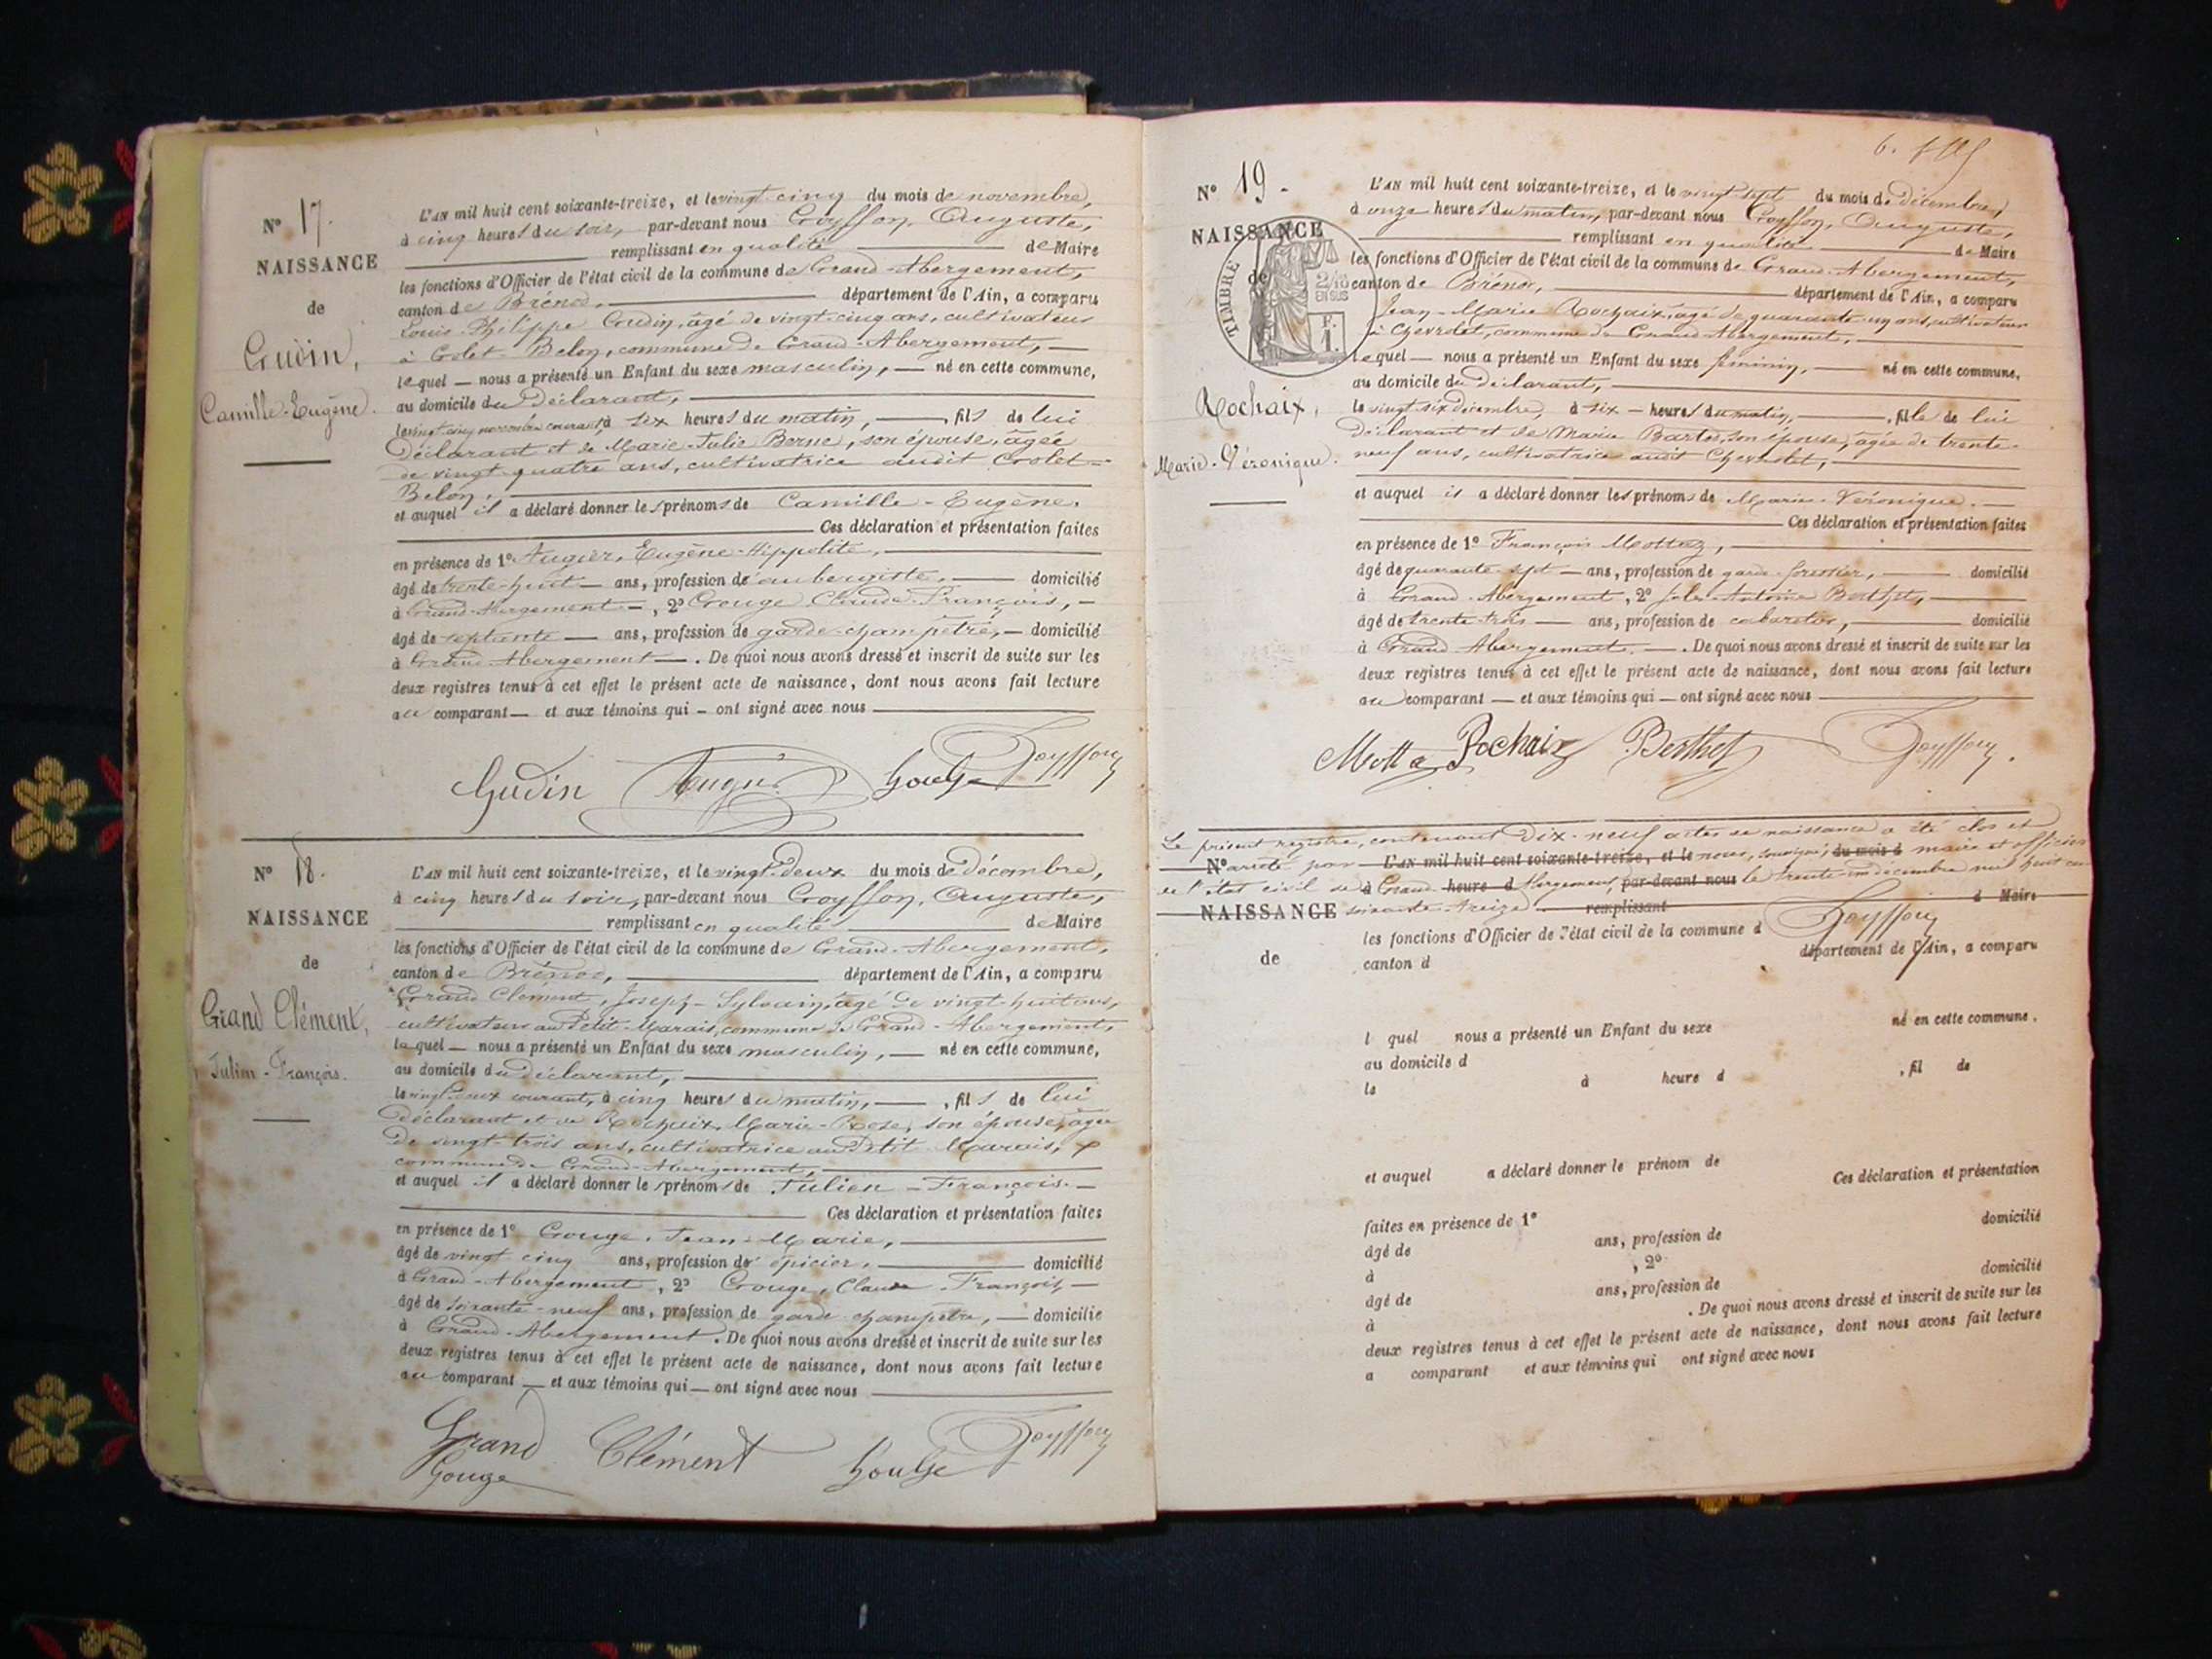 N° 17.
NAISSANCE
de
Gudin,
Camille-Eugène.
L'AN mil huit cent soixante-treize, et le vingt-cinq du mois de novembre,
à cinq heures du soir, par-devant nous Goyffon, Auguste,
remplissant en qualité de Maire
les fonctions d'Officier de l'état civil de la commune de Grand-Abergement,
canton de Brénod, département de l'Ain, a comparu
Louis-Philippe Gudin, âgé de vingt-cinq ans, cultivateur
à Golet-Belon, commune de Grand-Abergement,
lequel nous a présenté un Enfant du sexe masculin, né en cette commune,
au domicile du Déclarant,
le vingt-cinq novembre courant, à six heures du matin, fils de lui
Déclarant et de Marie-Julie Berne, son épouse, âgée
de vingt-quatre ans, cultivatrice audit Golet-
Belon,
et auquel il a déclaré donner les prénoms de Camille-Eugène.
Ces déclaration et présentation faites
en présence de 1° Augier, Eugène-Hippolite,
âgé de trente-huit ans, profession de aubergiste, domicilié
à Grand-Abergement, 2° Gouge Claude-François,
âgé de septante ans, profession de garde-champêtre, domicilié
à Grand-Abergement. De quoi nous avons dressé et inscrit de suite sur les
deux registres tenus à cet effet le présent acte de naissance, dont nous avons fait lecture
au comparant et aux témoins qui ont signé avec nous
Gudin Gouge Goyffon
N° 18.
NAISSANCE
de
Grand Clément,
Julien-François.
L'AN mil huit cent soixante-treize, et le vingt-deux du mois de décembre,
à cinq heures du soir, par-devant nous Goyffon, Auguste,
remplissant en qualité de Maire
les fonctions d'Officier de l'état civil de la commune de Grand-Abergement,
canton de Brénod, département de l'Ain, a comparu
Grand Clément, Joseph-Sylvain, âgé de vingt-huit ans,
cultivateur au Petit-Marais, commune de Grand-Abergement,
lequel nous a présenté un Enfant du sexe masculin, né en cette commune,
au domicile du déclarant,
le vingt-deux courant, à cinq heures du matin, fils de lui
déclarant et de Rochaix, Marie-Rose, son épouse, âgée
de vingt-trois ans, cultivatrice au Petit-Marais,
commune de Grand-Abergement,
et auquel il a déclaré donner les prénoms de Julien-François.
Ces déclaration et présentation faites
en présence de 1° Gouge, Jean-Marie,
âgé de vingt cinq ans, profession de épicier, domicilié
à Grand-Abergement, 2° Gouge, Claude François
âgé de soixante-neuf ans, profession de garde champêtre, domicilié
à Grand-Abergement. De quoi nous avons dressé et inscrit de suite sur les
deux registres tenus à cet effet le présent acte de naissance, dont nous avons fait lecture
au comparant et aux témoins qui ont signé avec nous
Grand Clément Gouge Goyffon
Gouge
N° 19.
NAISSANCE
de
TIMBRE
2/10
EN SUS
F.
1.
Rochaix,
Marie-Véronique.
L'AN mil huit cent soixante-treize, et le vingt-sept du mois de décembre,
à onze heures du matin, par-devant nous Goyffon, Auguste,
remplissant en qualité de Maire
les fonctions d'Officier de l'état civil de la commune de Grand-Abergement,
canton de Brénod, département de l'Ain, a comparu
Jean-Marie Rochaix, âgé de quarante-un ans, cultivateur
à Chevrolet, commune de Grand-Abergement,
lequel nous a présenté un Enfant du sexe féminin, né en cette commune,
au domicile du déclarant,
le vingt-six décembre, à six heures du matin, fille de lui
déclarant et de Marie son épouse, âgée de trente-
neuf ans, cultivatrice audit Chevrolet,
et auquel il a déclaré donner les prénoms de Marie-Véronique.
Ces déclaration et présentation faites
en présence de 1° François Mottaz,
âgé de quarante-sept ans, profession de garde-forestier, domicilié
à Grand-Abergement, 2° Jules-Antoine Berthet,
âgé de trente-trois ans, profession de cabaretier, domicilié
à Grand-Abergement. De quoi nous avons dressé et inscrit de suite sur les
deux registres tenus à cet effet le présent acte de naissance, dont nous avons fait lecture
au comparant et aux témoins qui ont signé avec nous
Rochaix Berthet Goyffon
Le présent registre, contenant dix-neuf actes de naissance a été clos et
N° arrêté par L'AN mil huit cent soixante-treize, et le nous, soussigné, du mois d maire et officier
de l'état civil de à Grand heure d Abergement, par-devant nous le trente-un décembre mil huit cent
NAISSANCE soixante-treize remplissant d Maire
Goyffon
de
les fonctions d'Officier de l'état civil de la commune d
canton d département de l'Ain, a comparu
l quel nous a présenté un Enfant du sexe né en cette commune,
au domicile d
le à heure d , fil de
et auquel a déclaré donner le prénom de
Ces déclaration et présentation
faites en présence de 1°
âgé de ans, profession de domicilié
à , 2°
âgé de ans, profession de domicilié
à . De quoi nous avons dressé et inscrit de suite sur les
deux registres tenus à cet effet le présent acte de naissance, dont nous avons fait lecture
a comparant et aux témoins qui ont signé avec nous